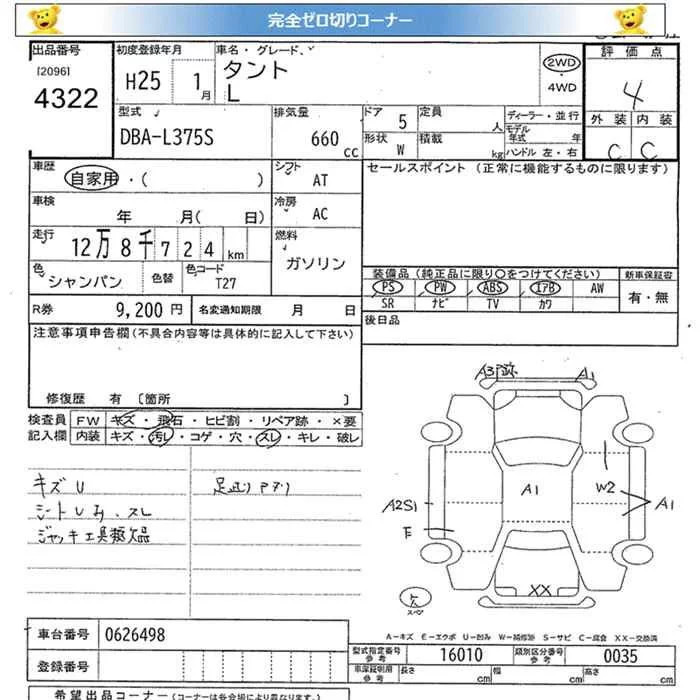 完全ゼロ切りコーナー
出品番号
[2096]
4322
初度登録年月
H25 1月
車名・グレード
タント
L
2WD
・
4WD
評価点
4
外装 内装
C C
型式
DBA-L375S
排気量
660 cc
ドア 5
形状 W
定員 人
積載 kg
ディーラー・並行
モデル年式 年
ハンドル 左・右
車歴
自家用・( )
シフト
AT
セールスポイント (正常に機能するものに限ります)
車検
年 月( 日)
冷房
AC
走行
12万8千724km
燃料
ガソリン
色
シャンパン
色替
色コード
T27
装備品 (純正品に限り○をつけてください)
新車保証書
PS PW ABS IAB AW
SR ナビ TV カワ
有・無
R券 9,200円
名変通知期限 月 日
後日品
注意事項申告欄(不具合内容等は具体的に記入して下さい)
修復歴 有 [箇所 ]
検査員
記入欄
FW キズ・飛石・ヒビ割・リペア跡・×要
内装 キズ・汚レ・コゲ・穴・スレ・キレ・破レ
キズU
シートUみ、スレ
ジャッキ工具類欠品
A3 A1
A1
W2
A2S1
A1
E
XX
スペア
A-キズ E-エクボ U-凹み W-補修跡 S-サビ C-腐食 XX-交換済
車台番号 0626498
型式指定番号
参考
16010
類別区分番号
参考
0035
登録番号
車庫証明用
参考
長さ cm 幅 cm 高さ cm
希望出品コーナー (コーナーは各会場により異なります。)